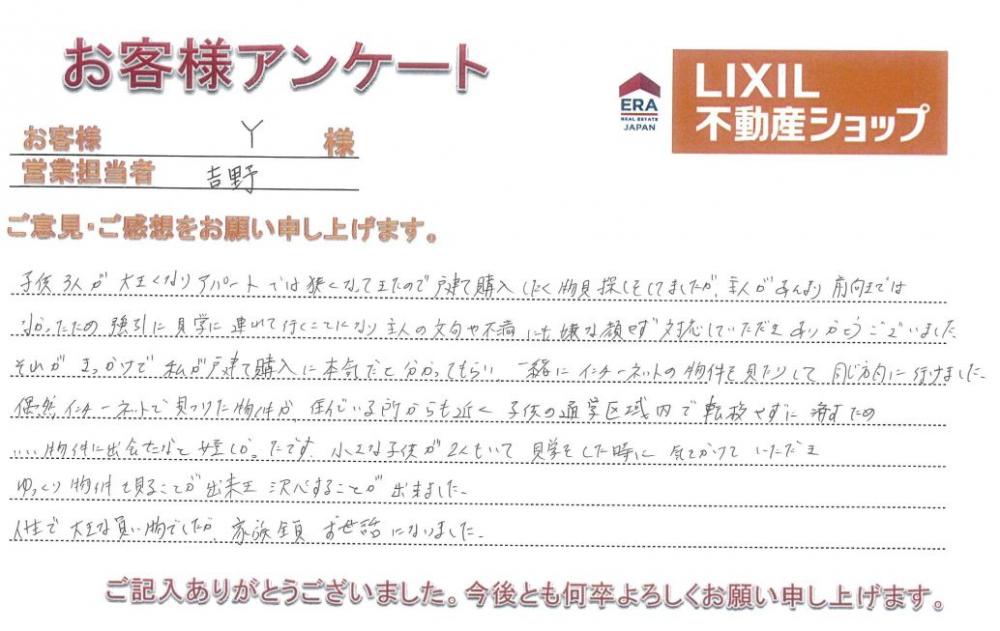 お客様アンケート
ERA
REAL ESTATE
JAPAN
LIXIL
不動産ショップ
お客様 Y 様
営業担当者 吉野
ご意見・ご感想をお願い申し上げます。
子供3人が大きくなりアパートでは狭くなってきたので戸建て購入したく物見探しをしてましたが、主人があんまり前向きでは
なかったため 強引に見学に連れて行くことになり主人の文句や不満にも嫌な顔せず対応していただきありがとうございました
それがきっかけで私が戸建て購入に本気だと分かってもらい、一緒にインターネットの物件を見たりして同じ方向に行けました。
偶然インターネットで見つけた物件が、住んでいる所からも近く子供の通学区域内で転校せずに済むため
いい物件に出会えたなと嬉しかったです。小さな子供が2人もいて見学をした時に気をかけていただき
ゆっくり物件を見ることが出来き決めることが出来ました。
人生で大きな買い物でしたが、家族全員お世話になりました。
ご記入ありがとうございました。今後とも何卒よろしくお願い申し上げます。